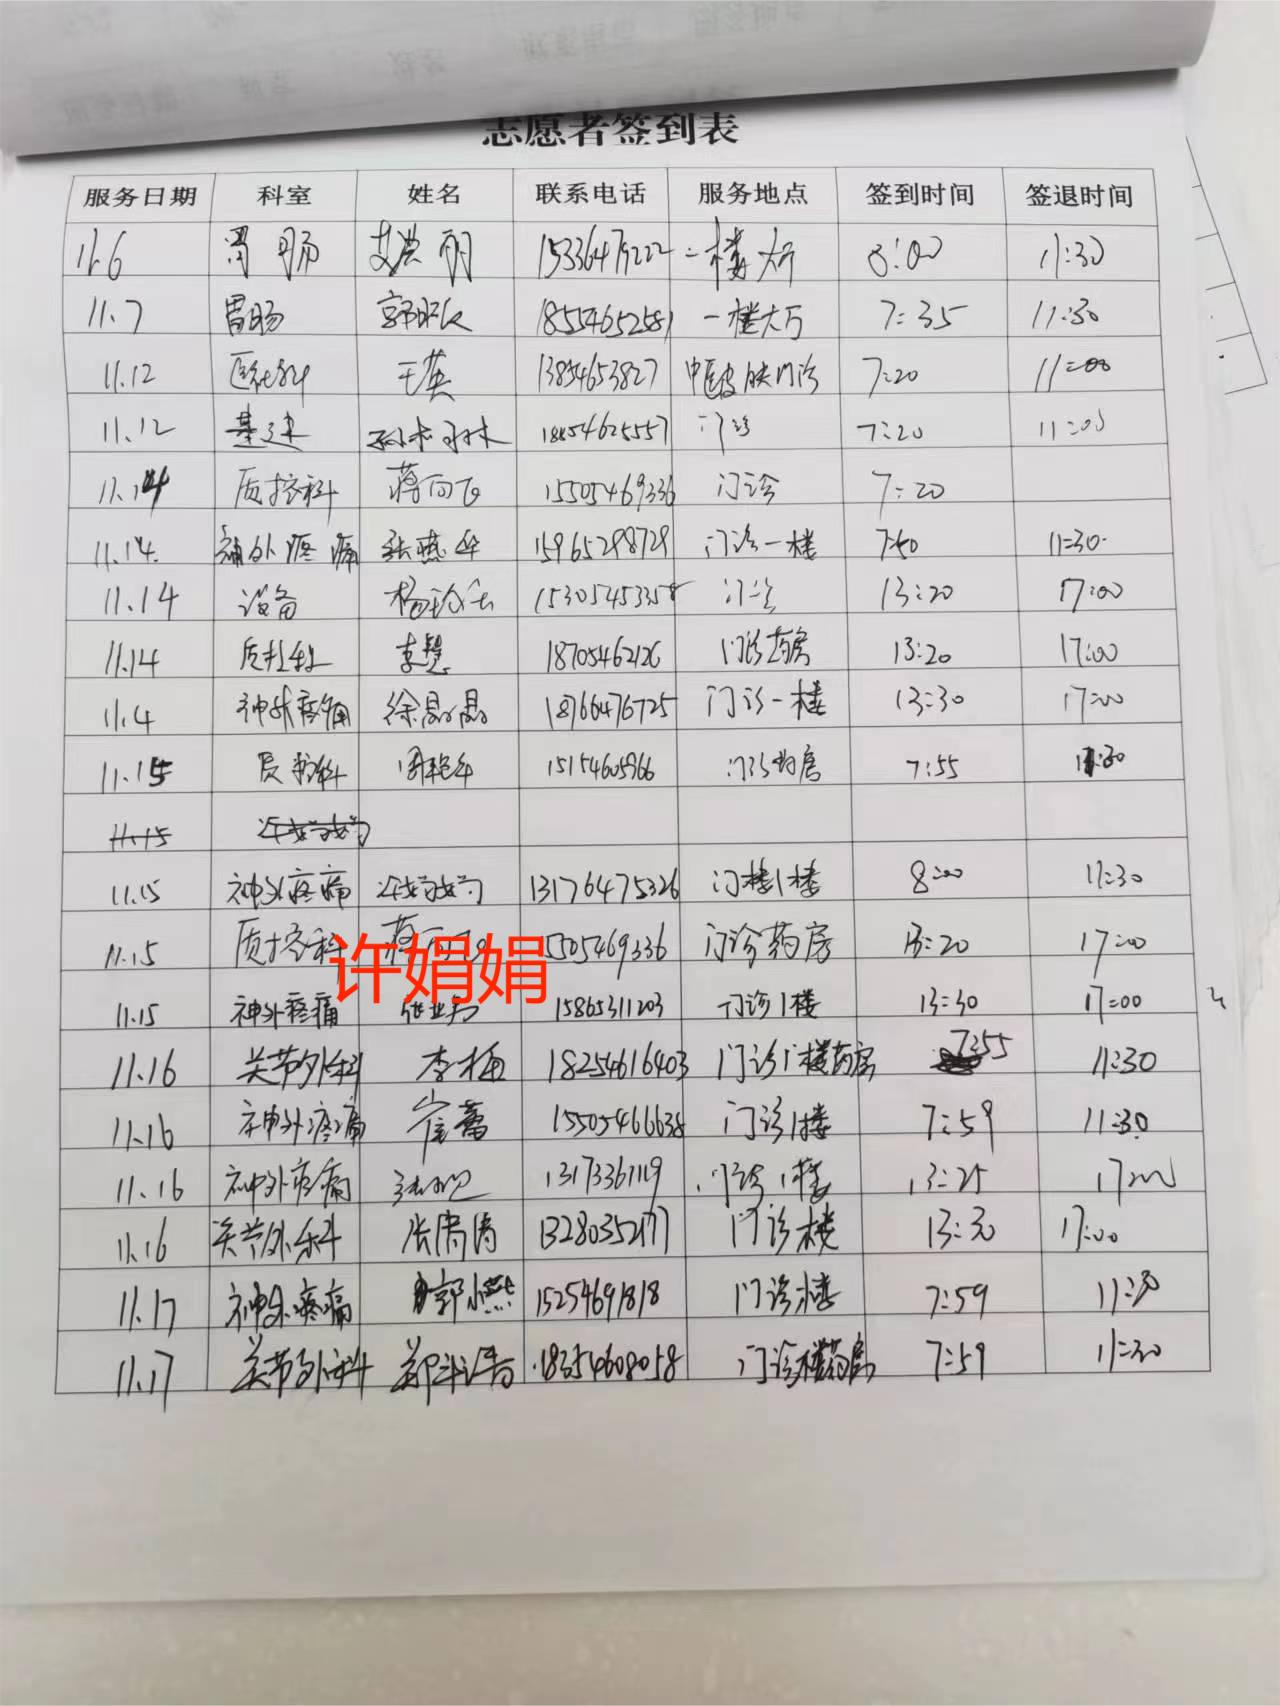 志愿者签到表
服务日期 科室 姓名 联系电话 服务地点 签到时间 签退时间
11.6 胃肠 艾洪丽 一楼大厅 8:00 11:30
11.7 胃肠 18554652581 一楼大厅 7:35 11:30
11.12 王英 13854653827 中医皮肤门诊 7:20 11:00
11.12 基建 门诊 7:20 11:00
11.14 质控科 蒋向飞 15505469336 门诊 7:20
11.14. 神外疼痛 张燕华 15965298729 门诊一楼 7:50 11:30.
11.14 设备 15305453358 门诊 13:20 17:00
11.14 质控科 李慧 18705462126 门诊药房 13:20 17:00
11.4 神外疼痛 徐晶晶 18766476725 门诊一楼 13:30 17:00
11.15 质控科 周艳华 门诊药房 7:55 11:30
11.15 许娟娟
11.15 神外疼痛 许娟娟 13176475326 门楼1楼 8:00 11:30
11.15 质控科 蒋向飞 5505469336 门诊药房 13:20 17:00
许娟娟
11.15 神外疼痛 15865311203 门诊1楼 13:30 17:00
11.16 关节外科 李梅 18254616403 门诊1楼药房 7:55 11:30
11.16 神外疼痛 崔蕾 15505466638 门诊1楼 7:59 11:30
11.16 神外疼痛 13173361119 门诊1楼 13:25 17:00
11.16 关节外科 张涛涛 13280352177 门诊楼 13:30 17:00
11.17 神外疼痛 郭小燕 15254691818 门诊楼 7:59 11:30
11.17 关节外科 18354608058 门诊楼药房 7:59 11:30